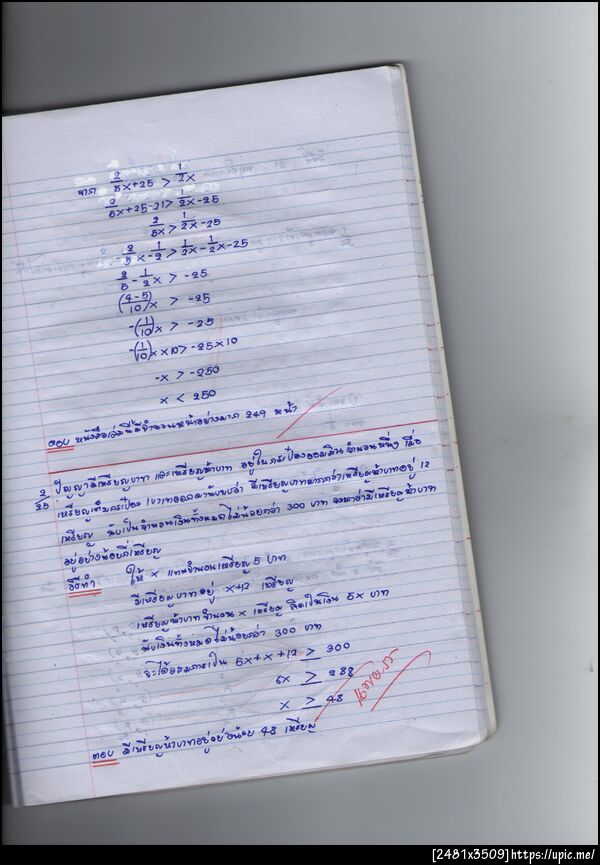 จาก 2/5x+25 > 1/2x
2/5x+25-25 > 1/2x-25
2/5x > 1/2x-25
> 1/2x-1/2x-25
2/5-1/2x > -25
(4-5/10)x > -25
-(1/10)x > -25
-(1/10)x×10 > -25×10
-x > -250
x < 250
ตอบ หนังสือเล่มนี้มีจำนวนหน้าอย่างมาก 249 หน้า
2/25 ปัญญามีเหรียญบาท และเหรียญห้าบาท อยู่ในกระป๋องออมสินจำนวนหนึ่ง เมื่อ
เหรียญเต็มกระป๋อง เขาเทออกมานับพบว่า มีเหรียญบาทมากกว่าเหรียญห้าบาทอยู่ 12
เหรียญ นับเป็นจำนวนเงินทั้งหมดไม่น้อยกว่า 300 บาท จงหาว่ามีเหรียญห้าบาท
อยู่อย่างน้อยกี่เหรียญ
วิธีทำ ให้ x แทนจำนวนเหรียญ 5 บาท
มีเหรียญบาทอยู่ x+12 เหรียญ
เหรียญห้าบาทจำนวน x เหรียญ คิดเป็นเงิน 5x บาท
นับเงินทั้งหมดไม่น้อยกว่า 300 บาท
จะได้อสมการเป็น 5x+x+12 ≥ 300
6x ≥ 288
x ≥ 48
ตอบ มีเหรียญห้าบาทอยู่อย่างน้อย 48 เหรียญ
[2481x3509]https://upic.me/